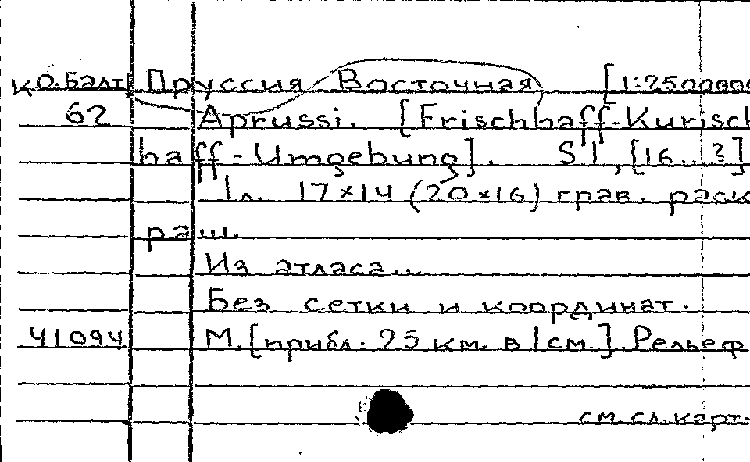 К О.Балт Пруссия Восточная [1:2500000
62 Aprussi. [Frischhaff-Kurisch
haff-Umgebung]. S l, [16..?]
1 л. 17×14 (20×16) грав. раск
раш.
Из атласа...
Без сетки и координат.
41094 М. [прибл. 25 км. в 1 см.]. Рельеф
см. сл. карт.